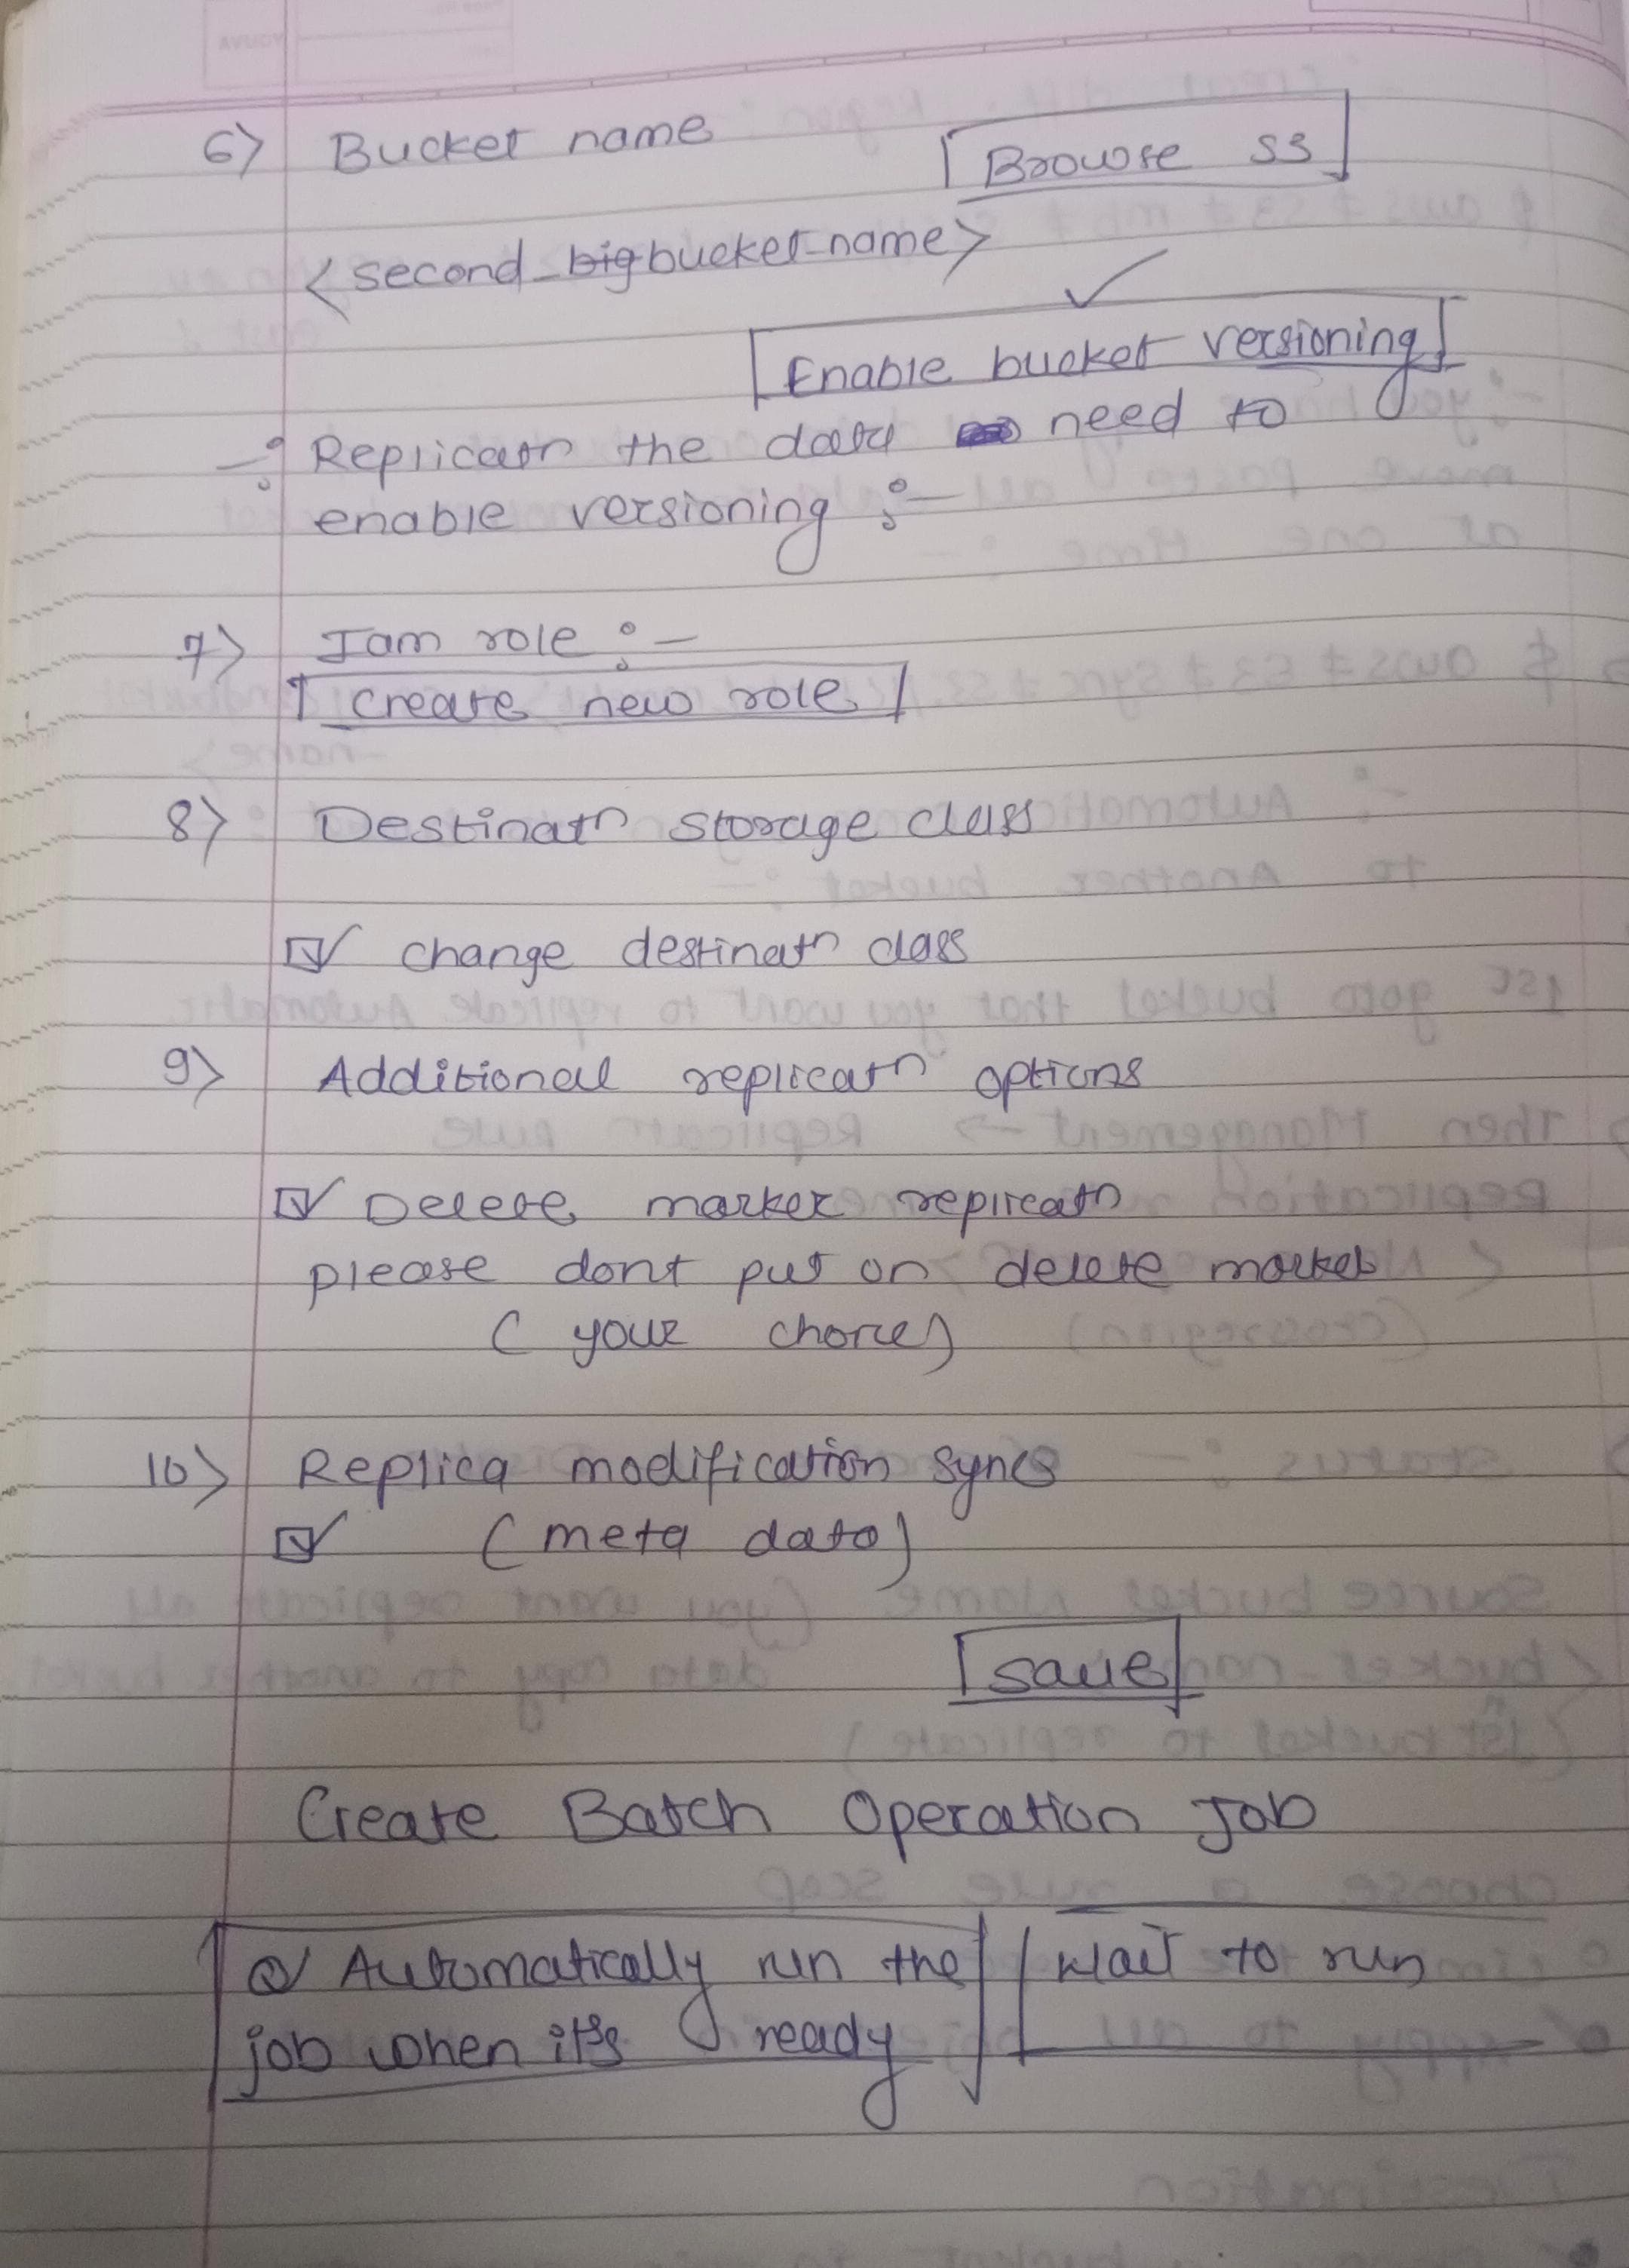 6> Bucket name
Browse S3
<second_big bucket-name>
✓
Enable bucket versioning
-: Replicatn the data need to
enable versioning :-
7> Iam role :-
create new role
8> Destinatn storage class
☑ change destinatn class
9> Additional replicatn options
☑ Delete marker replicatn
please dont put on delete marker
( your choice )
10> Replica modification syncs
☑ (meta data)
save
Create Batch Operation Job
Automatically run the
job when it's ready
wait to run